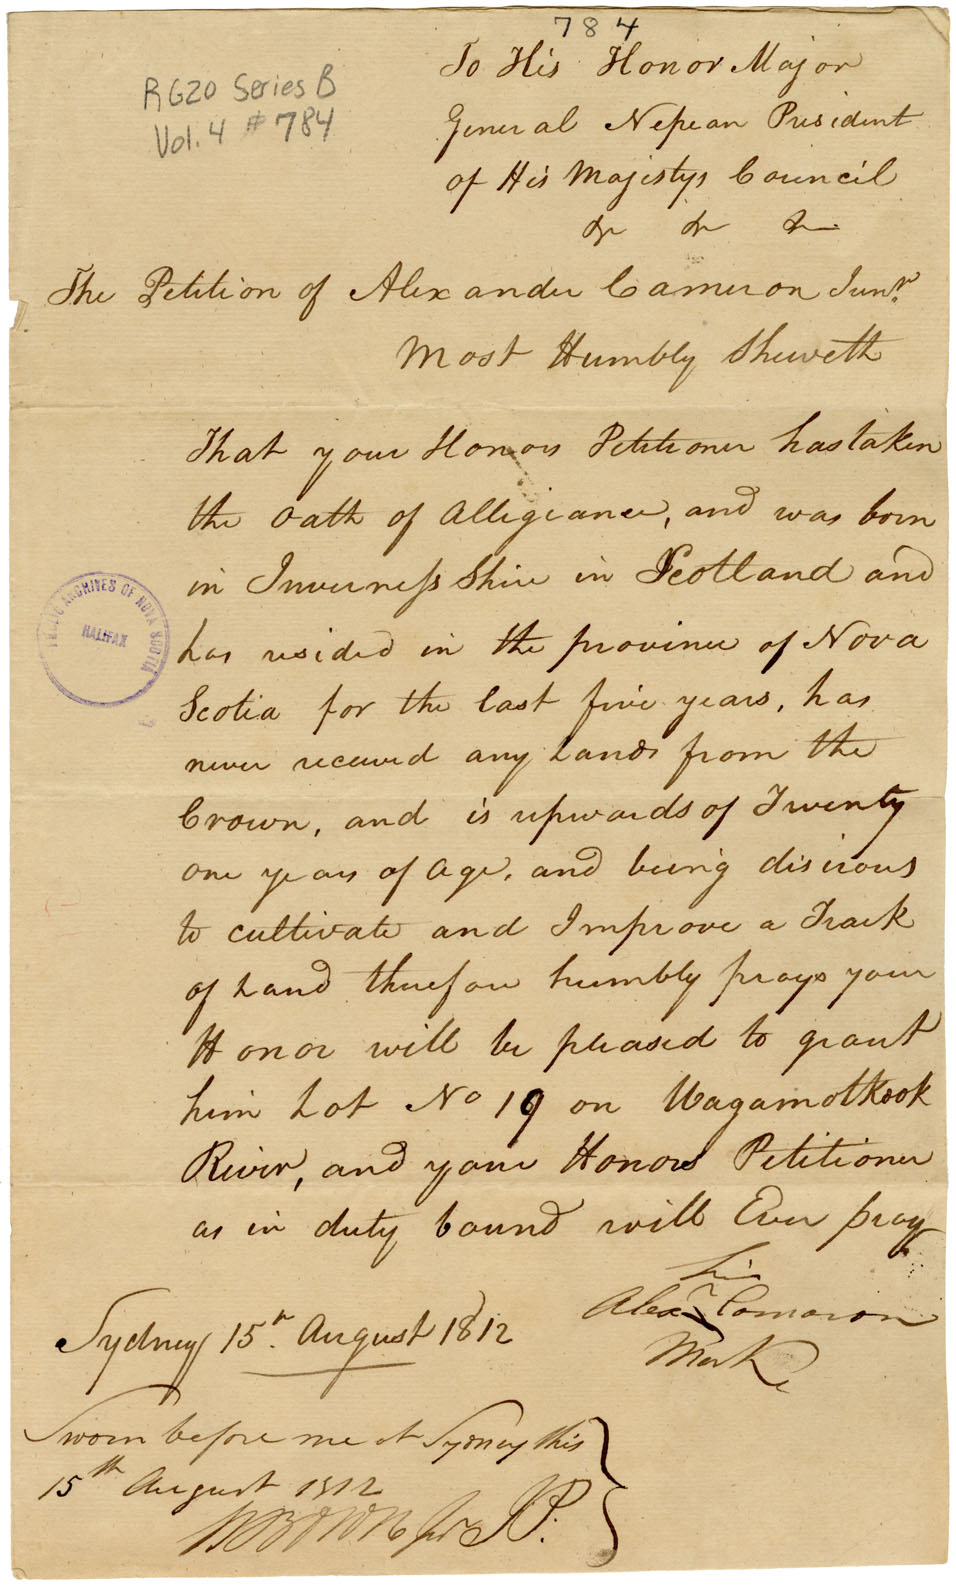 784
RG20 Series B
Vol. 4 # 784
To His Honor Major
General Nepean President
of His Majestys Council
&c &c &c
The Petition of Alexander Cameron Junr.
Most Humbly Sheweth
That your Honors Petitioner has taken
the Oath of Allegiance, and was born
in Inverness Shire in Scotland and
has resided in the province of Nova
Scotia for the last five years, has
never received any Lands from the
Crown, and is upwards of Twenty
one years of age, and being disirous
to cultivate and Improve a Track
of Land therefore humbly prays your
Honor will be pleased to grant
him Lot No 19 on Wagamotkook
River, and your Honors Petitioner
as in duty bound will Ever pray
his
Alexr Cameron
Mark
Sydney 15th. August 1812
Sworn before me at Sydney this
15th August 1812
JP.
PUBLIC ARCHIVES OF NOVA SCOTIA
HALIFAX